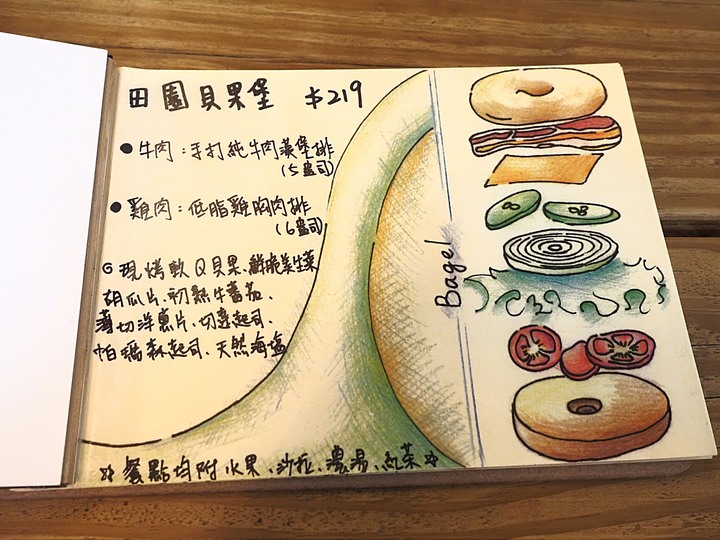 田園貝果堡 $219
●牛肉:手打純牛肉漢堡排
(5盎司)
●雞肉:低脂雞胸肉排
(6盎司)
現烤軟Q貝果、鮮脆美生菜
胡瓜片、初熟牛蕃茄、
薄切洋蔥片、切達起司、
帕瑪森起司、天然海鹽
Bagel
餐點均附水果、沙拉、濃湯、